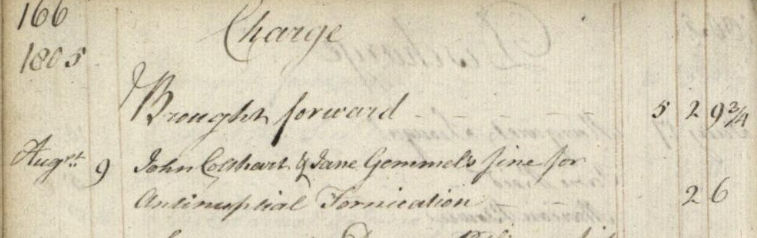 166
Charge
1805
Brought forward 5 2 9 3/4
Augst 9 John Lockhart & Jane Gemmels fine for
Antinuptial Fornication 2 6